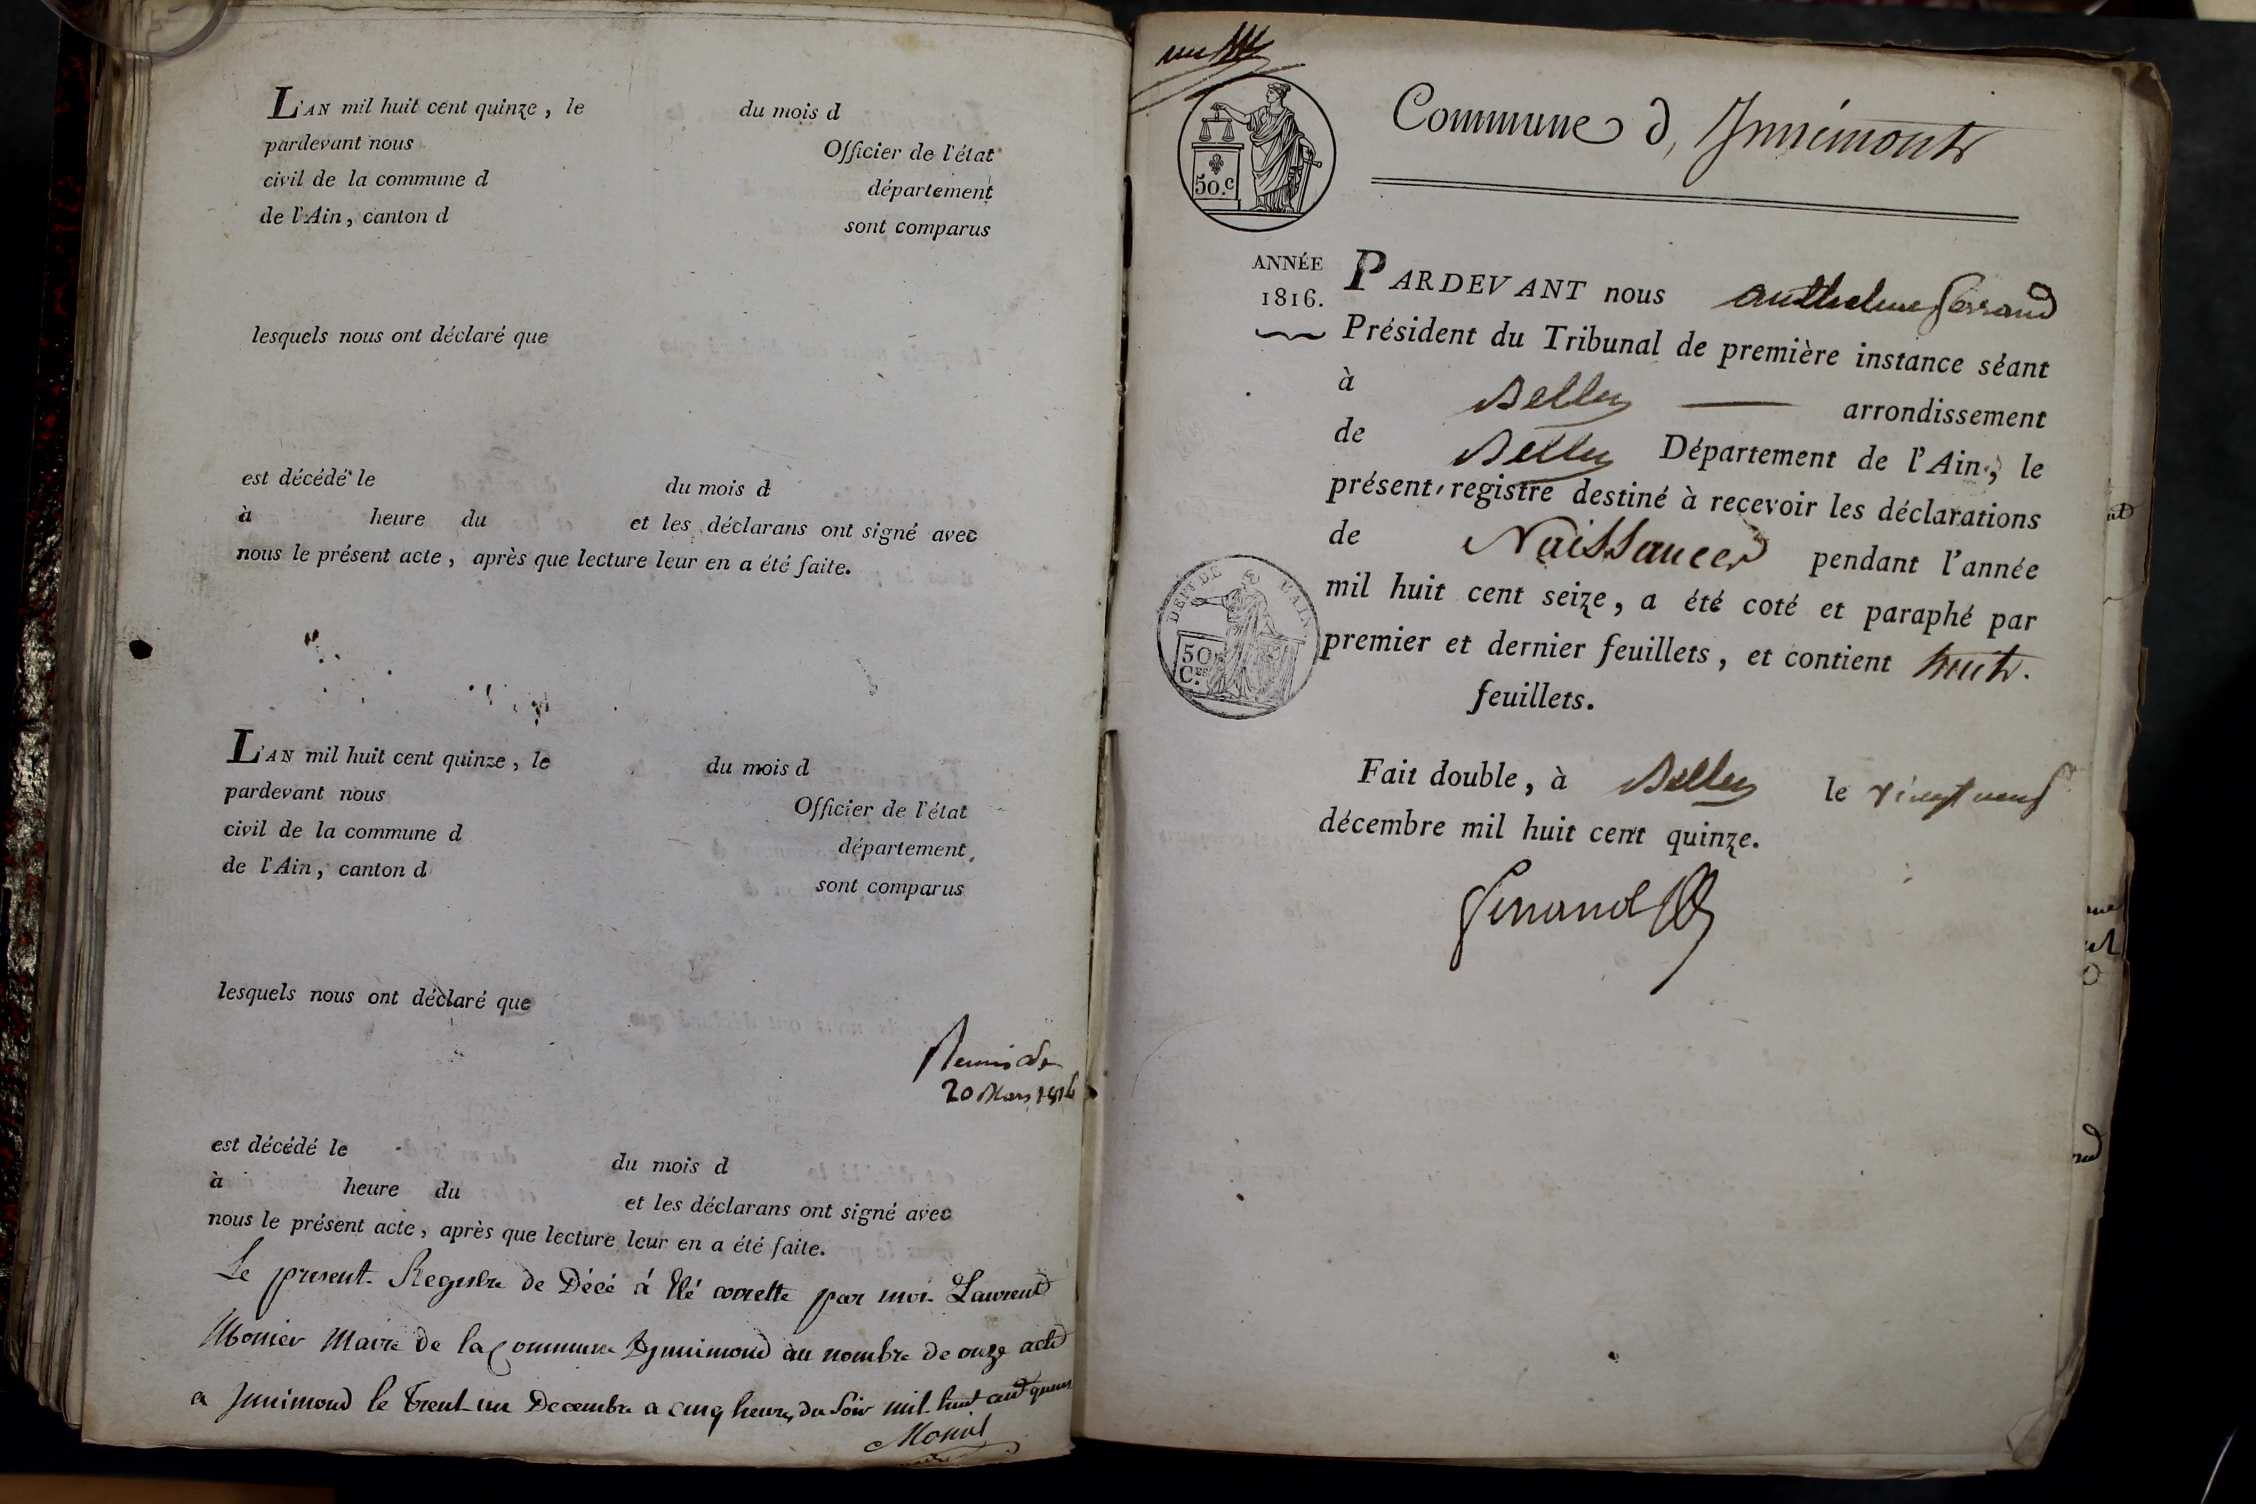 L'AN mil huit cent quinze, le du mois d
pardevant nous Officier de l'état
civil de la commune d département
de l'Ain, canton d sont comparus
lesquels nous ont déclaré que
est décédé le du mois d
à heure du et les déclarans ont signé avec
nous le présent acte, après que lecture leur en a été faite.
L'AN mil huit cent quinze, le du mois d
pardevant nous Officier de l'état
civil de la commune d département
de l'Ain, canton d sont comparus
lesquels nous ont déclaré que
20 Mars 1816
est décédé le du mois d
à heure du et les déclarans ont signé avec
nous le présent acte, après que lecture leur en a été faite.
Le present Registre de Décé á été par moi Laurent
Monier Maire de la Commune au nombre de onze acte
a Innimond le trent un Decembre a cinq heures du soir mil huit cent
un
Commune d, Innimont
50.c
ANNÉE
1816.
PARDEVANT nous anthelme ferrand
Président du Tribunal de première instance séant
à Belley — arrondissement
de Belley Département de l'Ain, le
présent registre destiné à recevoir les déclarations
de Naissances pendant l'année
mil huit cent seize, a été coté et paraphé par
premier et dernier feuillets, et contient huit.
feuillets.
DEPT DE L'AIN
50
C.es
Fait double, à Belley le vingt neuf
décembre mil huit cent quinze.
ferrand